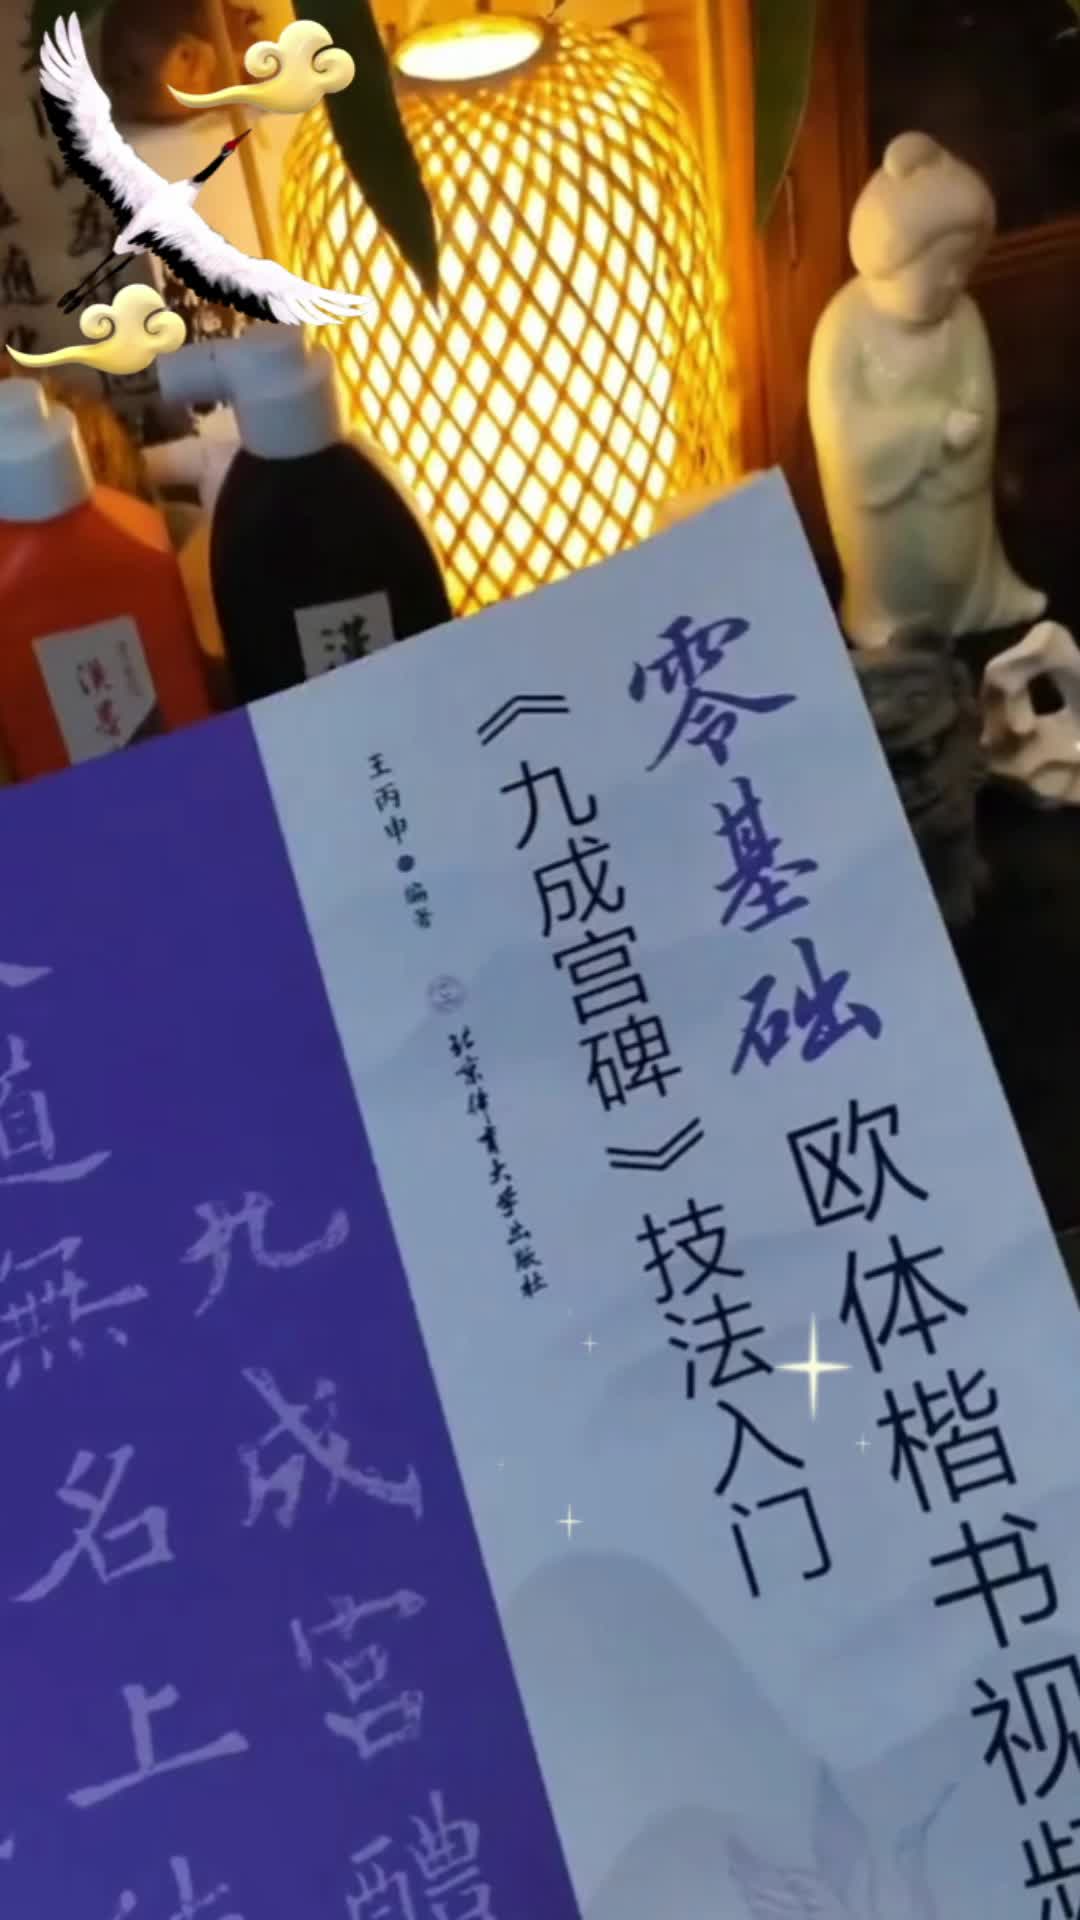 零基础欧体楷书视频
《九成宫碑》技法入门
王丙申·编著
北京体育大学出版社
九成宫醴
道無名上
漢